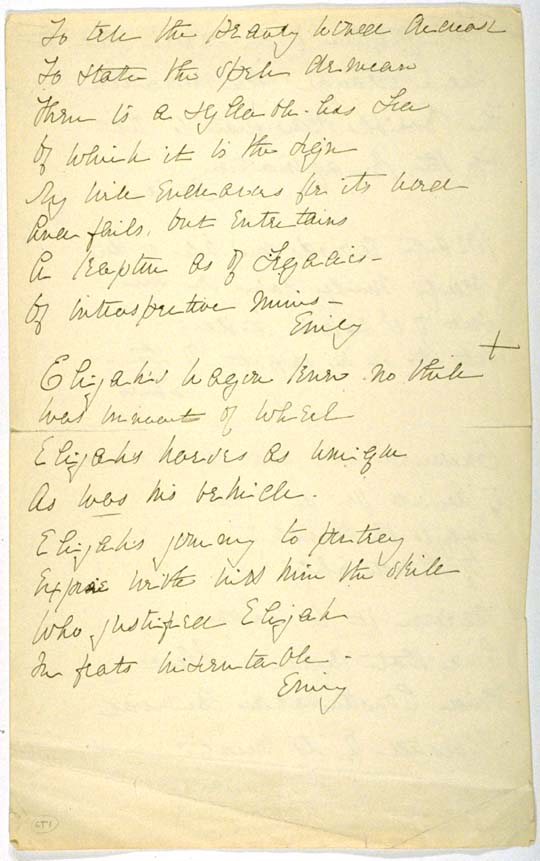 To tell the Beauty would decrease
To state the spell demean
There is a syllable-less Sea
Of which it is the sign
My will Endeavors for its word
And fails, but Entertains
A Rapture as of Legacies -
Of introspective Mines -
Emily
Elijah's wagon knew no thill
was innocent of wheel
Elijah's horses as unique
As was his vehicle.
Elijah's journey to portray
Expire with him the skill
Who justified Elijah
In feats inscrutable -
Emily